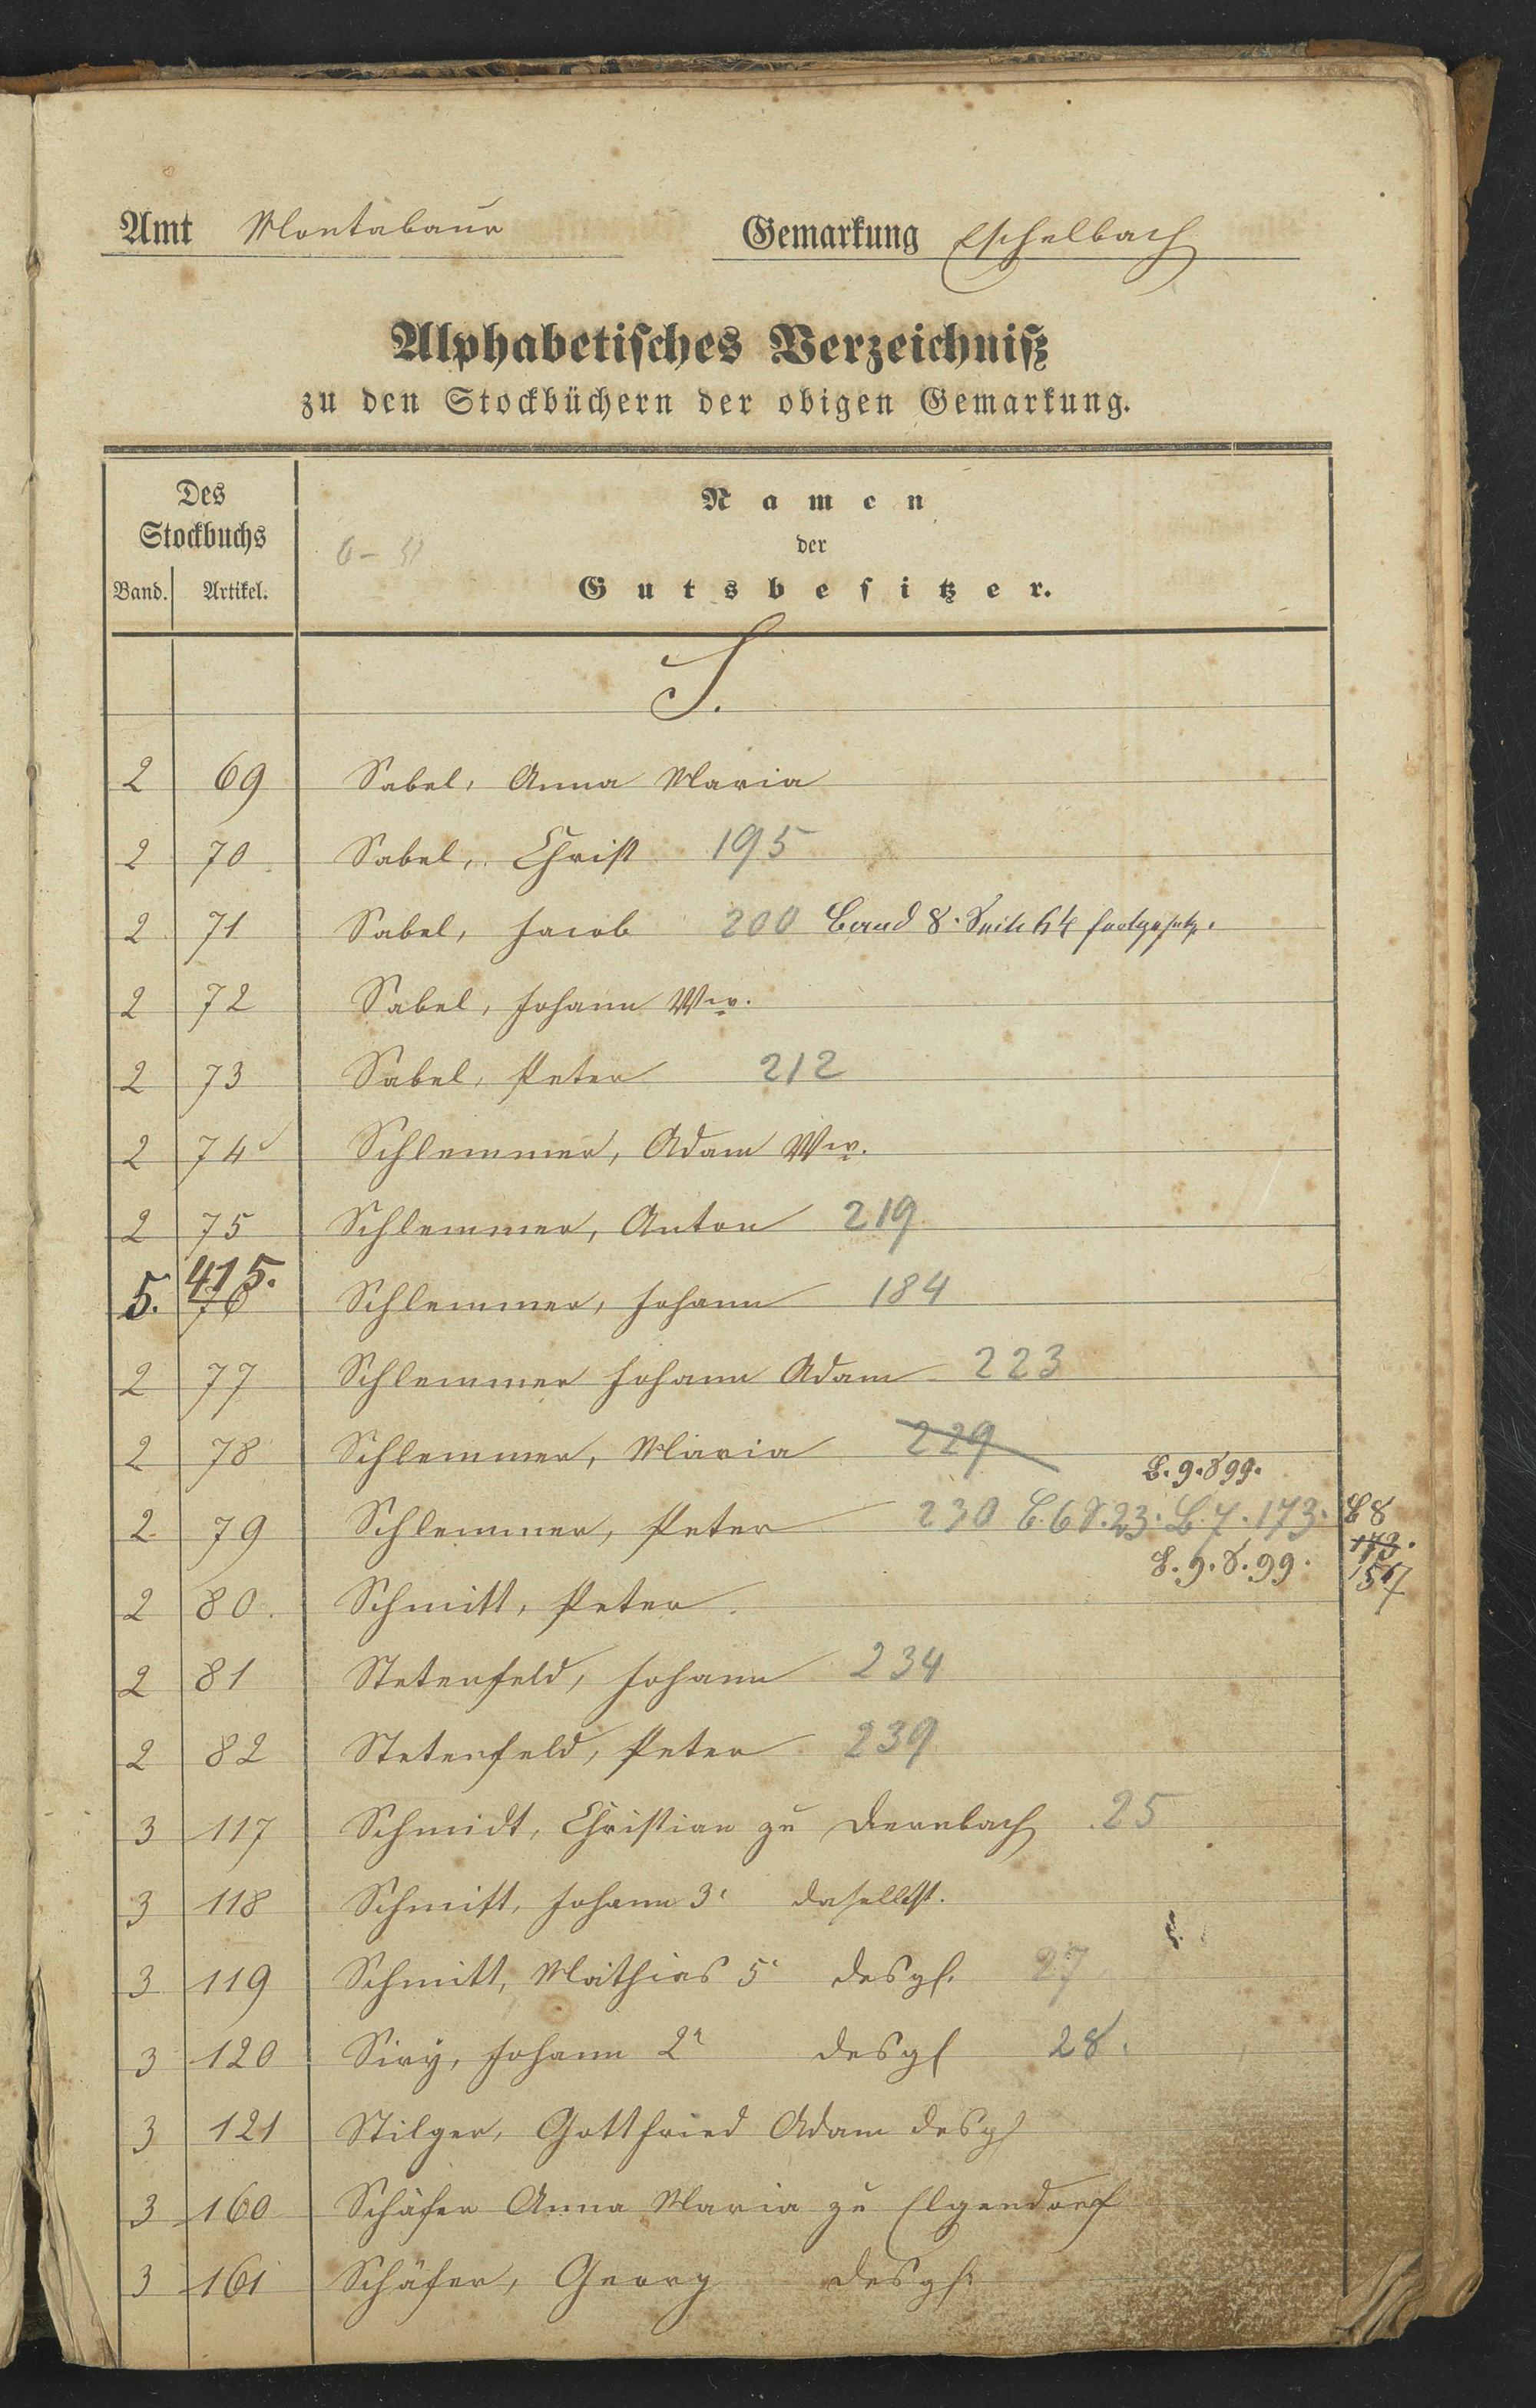 Amt Montabaur Gemarkung Eschelbach
Alphabetisches Verzeichniß
zu den Stockbüchern der obigen Gemarkung.
Des
Stockbuchs
Band. Artikel.
Namen
der
Gutsbesitzer.
S.
2 69 Sabel, Anna Maria
2 70 Sabel, Christ 195
2 71 Sabel, Jacob 200 Band 8. Seite 64 fortgesetz.
2 72 Sabel, Johann Ww.
2 73 Sabel, Peter 212
2 74 Schlemmer, Adam Ww.
2 75 Schlemmer, Anton 219
5. 415. 76 Schlemmer, Johann 184
2 77 Schlemmer Johann Adam 223
2 78 Schlemmer, Maria 229
B. 9. S 99.
2 79 Schlemmer, Peter 230 B. 6 S. 23. B. 7. 173. B 8
173.
B. 9. S. 99. 157
2 80. Schmitt, Peter.
2 81 Stetenfeld, Johann 234
2 82 Stetenfeld, Peter 239
3 117 Schmidt, Christian zu Dernbach 25
3 118 Schmitt, Johann 3r daselbst.
3 119 Schmitt, Mathias 5r desgl. 27
3 120 Siry, Johann 2r desgl 28.
3 121 Stilger, Gottfried Adam desgl
3 160 Schäfer Anna Maria zu Elgendorf
3 161 Schäfer, Georg desgl.